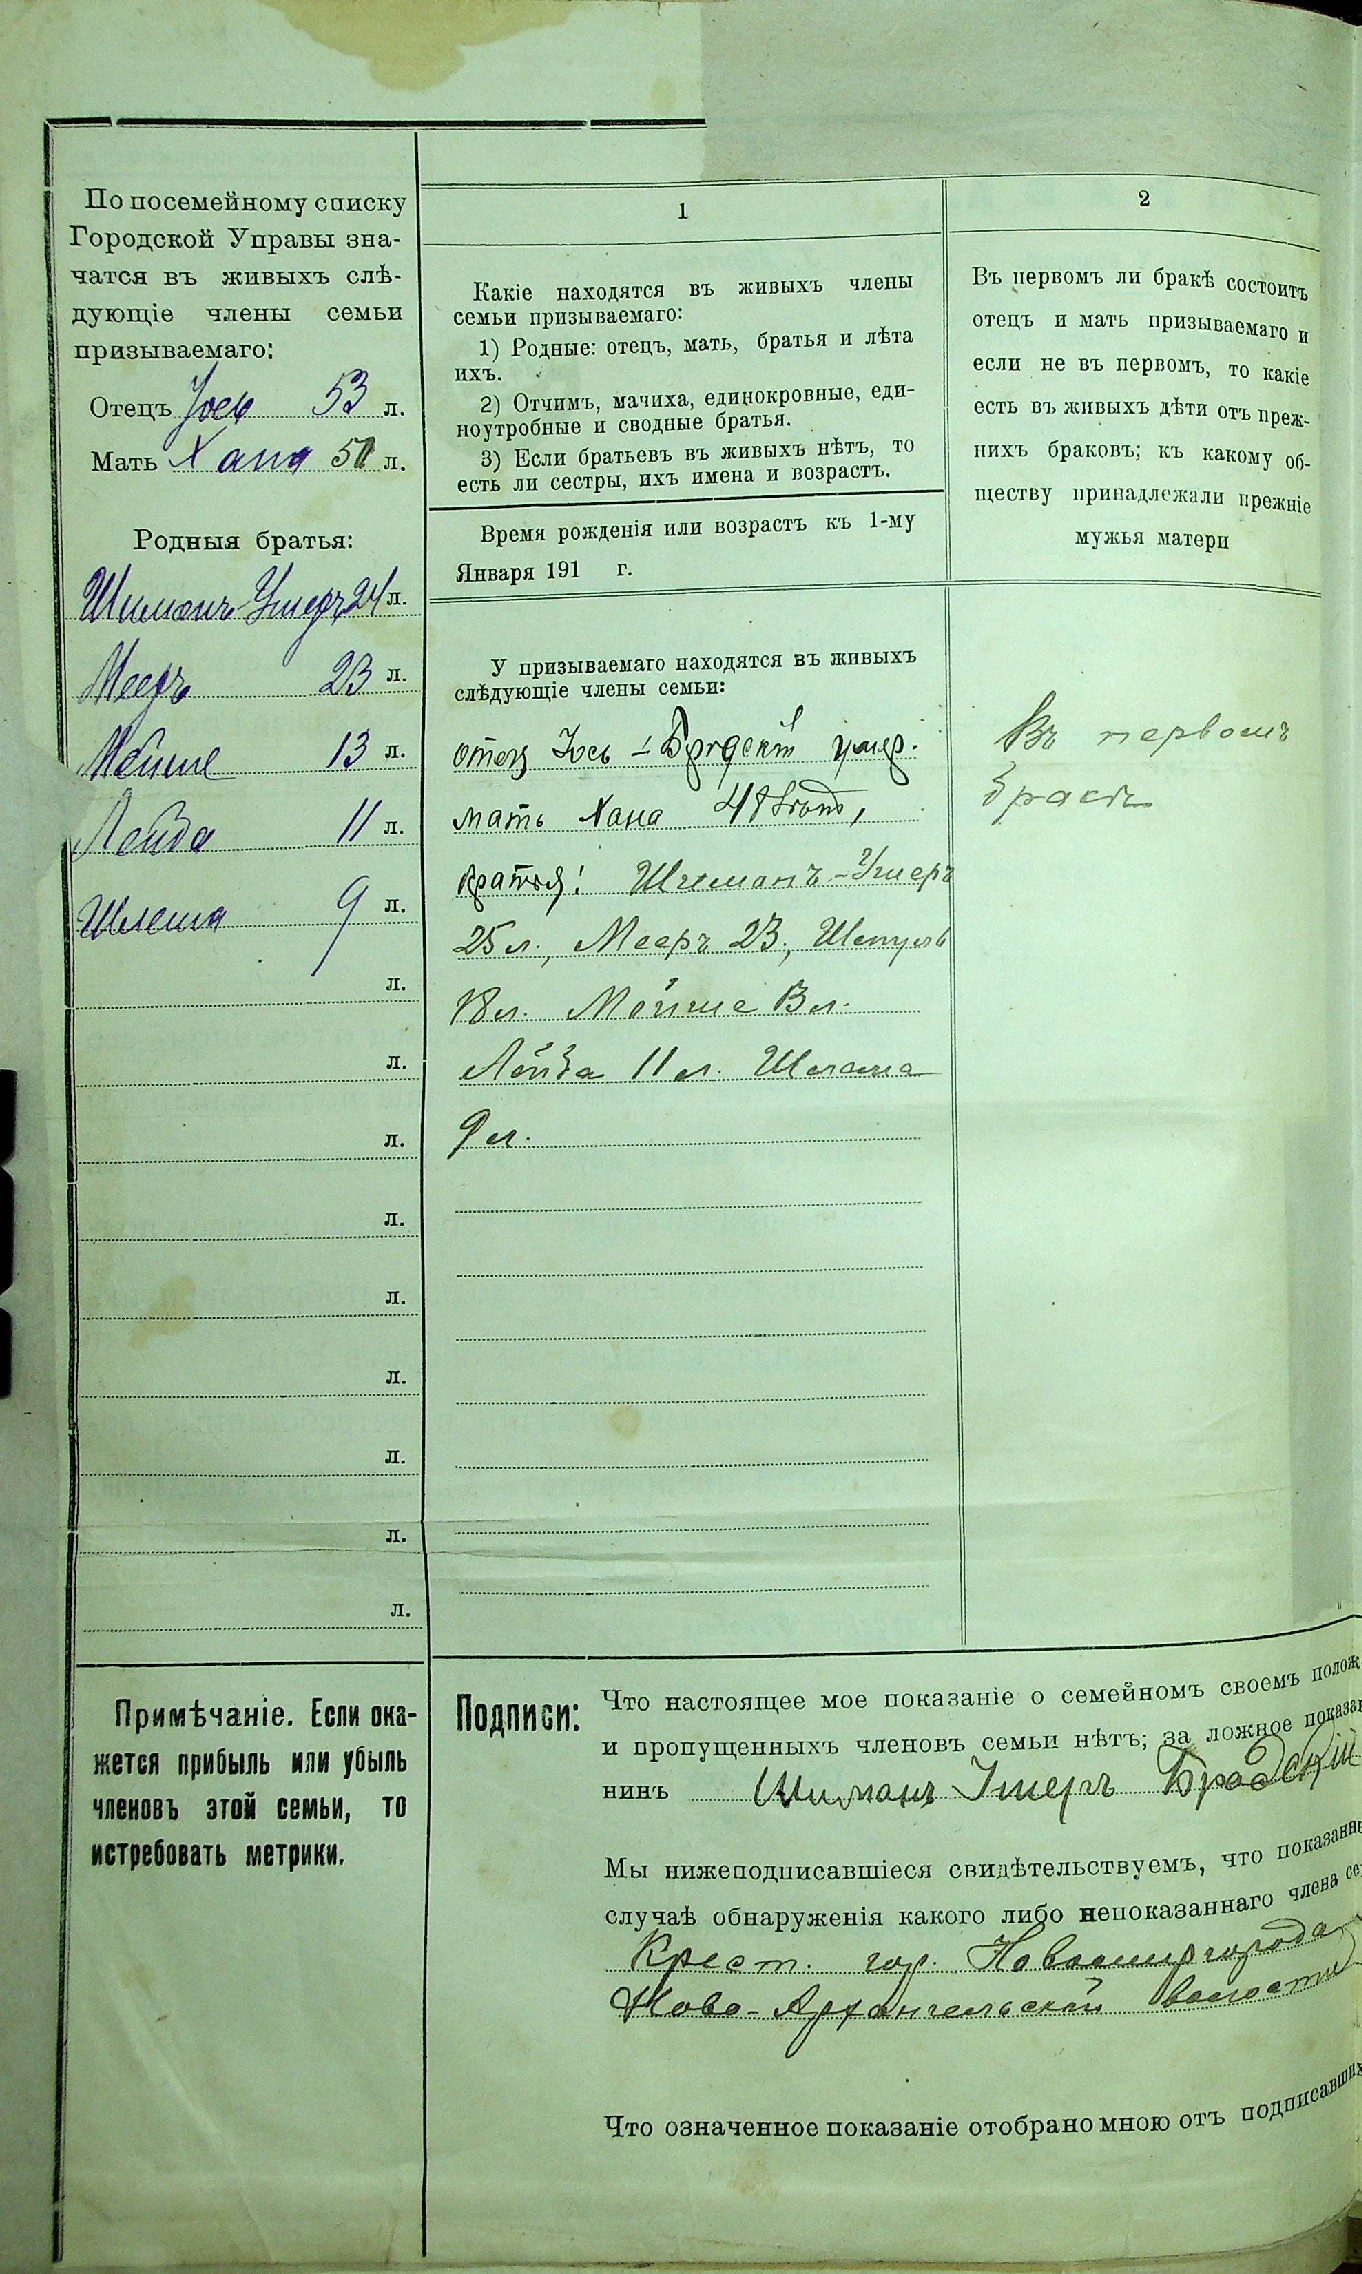 По посемейному списку
Городской Управы зна-
чатся въ живыхъ слѣ-
дующіе члены семьи
призываемаго:
Отецъ Іось 53 л.
Мать Хана 51 л.
Родныя братья:
Шимонъ Ушеръ 24 л.
Мееръ 23 л.
Мойше 13 л.
Лейба 11 л.
Шлема 9 л.
л.
л.
л.
л.
л.
л.
л.
л.
л.
Примѣчаніе. Если ока-
жется прибыль или убыль
членовъ этой семьи, то
истребовать метрики.
1
Какіе находятся въ живыхъ члены
семьи призываемаго:
1) Родные: отецъ, мать, братья и лѣта
ихъ.
2) Отчимъ, мачиха, единокровные, еди-
ноутробные и сводные братья.
3) Если братьевъ въ живыхъ нѣтъ, то
есть ли сестры, ихъ имена и возрастъ.
Время рожденія или возрастъ къ 1-му
Января 191 г.
У призываемаго находятся въ живыхъ
слѣдующіе члены семьи:
отец Іось Бродскій умер.
мать Хана 48 лѣт,
братья: Шимонъ-Ушеръ
25 л., Мееръ 23, Шепсель
18 л. Мойше 13 л.
Лейба 11 л. Шлема
9 л.
2
Въ первомъ ли бракѣ состоитъ
отецъ и мать призываемаго и
если не въ первомъ, то какіе
есть въ живыхъ дѣти отъ преж-
нихъ браковъ; къ какому об-
ществу принадлежали прежніе
мужья матери
Въ первомъ
бракѣ
Подписи:
Что настоящее мое показаніе о семейномъ своемъ полож
и пропущенныхъ членовъ семьи нѣтъ; за ложное показан
нинъ Шимонъ Ушеръ Бродскій
Мы нижеподписавшіеся свидѣтельствуемъ, что показанны
случаѣ обнаруженія какого либо непоказаннаго члена се
Крест. гор. Новомиргорода,
Ново-Архангельской волости
Что означенное показаніе отобрано мною отъ подписавших